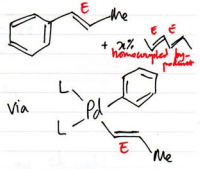 E
Me
E E
+ x%
homocoupled by-
product
L
via Pd
L
E
Me